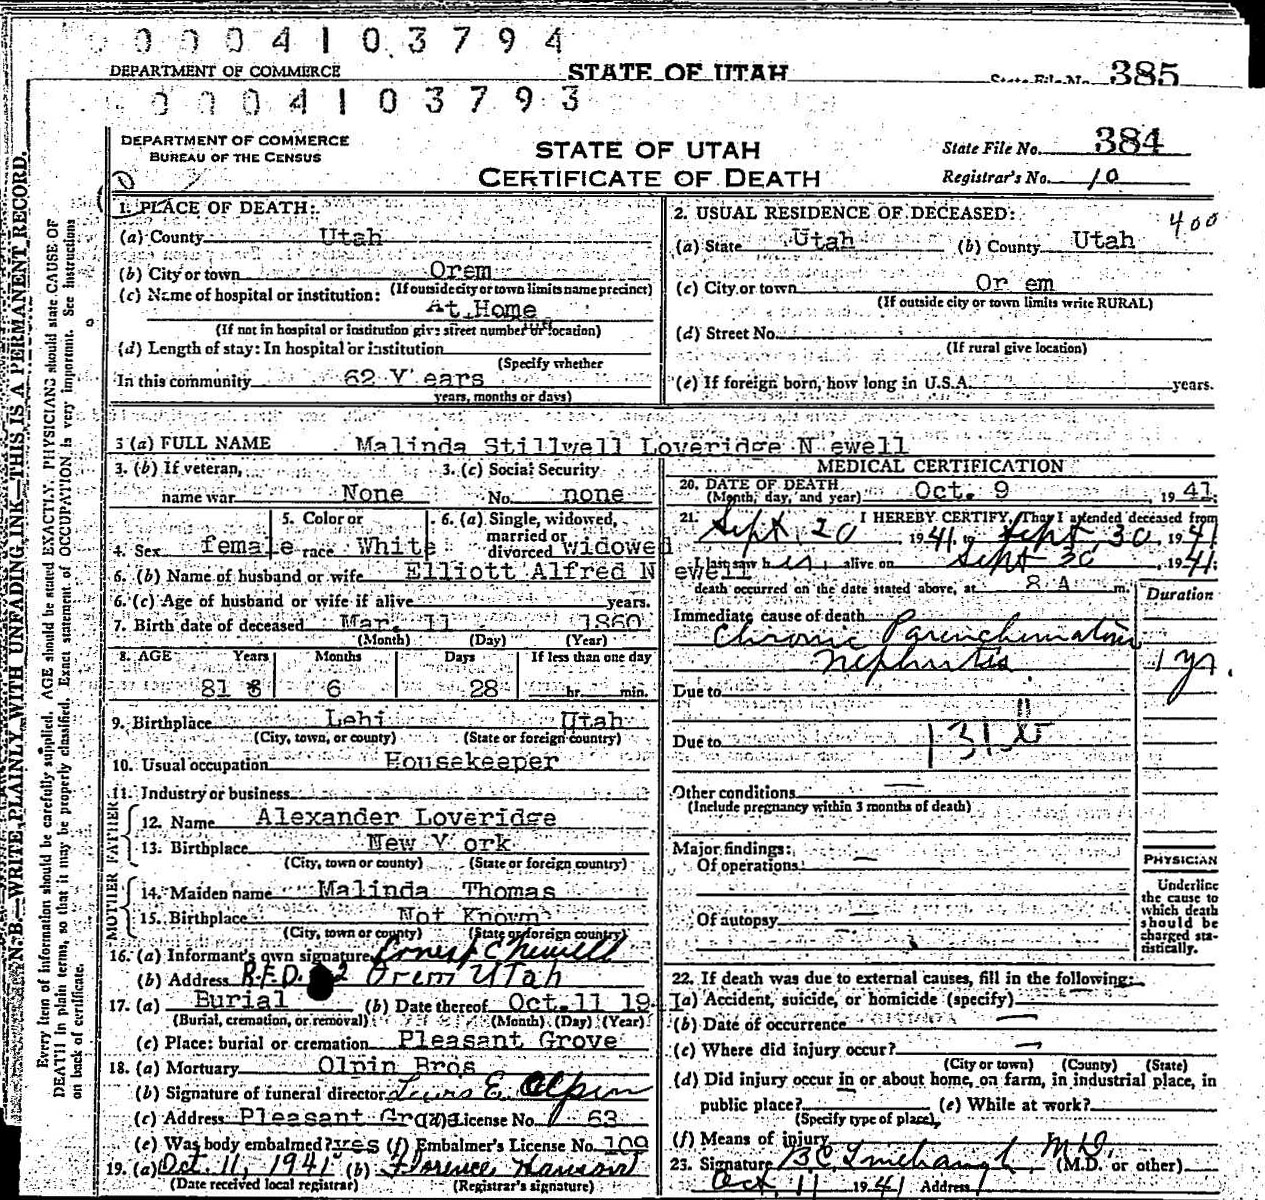 0004103794
DEPARTMENT OF COMMERCE STATE OF UTAH State File No. 385
0004103793
DEPARTMENT OF COMMERCE
BUREAU OF THE CENSUS
STATE OF UTAH
CERTIFICATE OF DEATH
State File No. 384
Registrar's No. 10
N. B.—WRITE PLAINLY WITH UNFADING INK—THIS IS A PERMANENT RECORD.
Every item of information should be carefully supplied. AGE should be stated EXACTLY. PHYSICIANS should state CAUSE OF
DEATH in plain terms, so that it may be properly classified. Exact statement of OCCUPATION is very important. See instructions
on back of certificate.
1. PLACE OF DEATH:
(a) County Utah
(b) City or town Orem
(If outside city or town limits name precinct)
(c) Name of hospital or institution:
At Home
(If not in hospital or institution give street number or location)
(d) Length of stay: In hospital or institution
(Specify whether
In this community 62 Y ears
years, months or days)
2. USUAL RESIDENCE OF DECEASED: 400
(a) State Utah (b) County Utah
(c) City or town Or em
(If outside city or town limits write RURAL)
(d) Street No.
(If rural give location)
(e) If foreign born, how long in U.S.A. years.
3 (a) FULL NAME Malinda Stillwell Loveridge N ewell
3. (b) If veteran,
name war None
3. (c) Social Security
No. none
4. Sex female
5. Color or
race White
6. (a) Single, widowed,
married or
divorced widowed
6. (b) Name of husband or wife Elliott Alfred N ewell
6. (c) Age of husband or wife if alive years.
7. Birth date of deceased Mar. 11 1860
(Month) (Day) (Year)
8. AGE Years Months Days If less than one day
81 6 28 hr. min.
9. Birthplace Lehi Utah
(City, town, or county) (State or foreign country)
10. Usual occupation Housekeeper
11. Industry or business
FATHER
12. Name Alexander Loveridge
13. Birthplace New Y ork
(City, town or county) (State or foreign country)
MOTHER
14. Maiden name Malinda Thomas
15. Birthplace Not Known
(City, town or county) (State or foreign country)
16. (a) Informant's own signature Ernest C Newell
(b) Address R.F.D. 2 Orem Utah
17. (a) Burial (b) Date thereof Oct. 11 1941
(Burial, cremation, or removal) (Month) (Day) (Year)
(c) Place: burial or cremation Pleasant Grove
18. (a) Mortuary Olpin Bros
(b) Signature of funeral director Lewis E. Olpin
(c) Address Pleasant Grove (d) License No. 63
(e) Was body embalmed? yes (f) Embalmer's License No. 109
19. (a) Oct. 11, 1941 (b) Florence Hanson
(Date received local registrar) (Registrar's signature)
MEDICAL CERTIFICATION
20. DATE OF DEATH
(Month, day, and year) Oct. 9, 1941;
21. I HEREBY CERTIFY, That I attended deceased from
Sept. 20, 1941, to Sept 30, 1941
I last saw her alive on Sept 30, 1941;
death occurred on the date stated above, at 8 A m.
Duration
Immediate cause of death
Chronic Parenchematous
Nephritis 1 yr.
Due to
Due to 131b
Other conditions —
(Include pregnancy within 3 months of death)
Major findings:
Of operations: —
Of autopsy —
PHYSICIAN
Underline
the cause to
which death
should be
charged sta-
tistically.
22. If death was due to external causes, fill in the following:
(a) Accident, suicide, or homicide (specify) —
(b) Date of occurrence —
(c) Where did injury occur? —
(City or town) (County) (State)
(d) Did injury occur in or about home, on farm, in industrial place, in
public place? (e) While at work?
(Specify type of place)
(f) Means of injury
23. Signature M.D. (M.D. or other)
Oct. 11 1941 Address